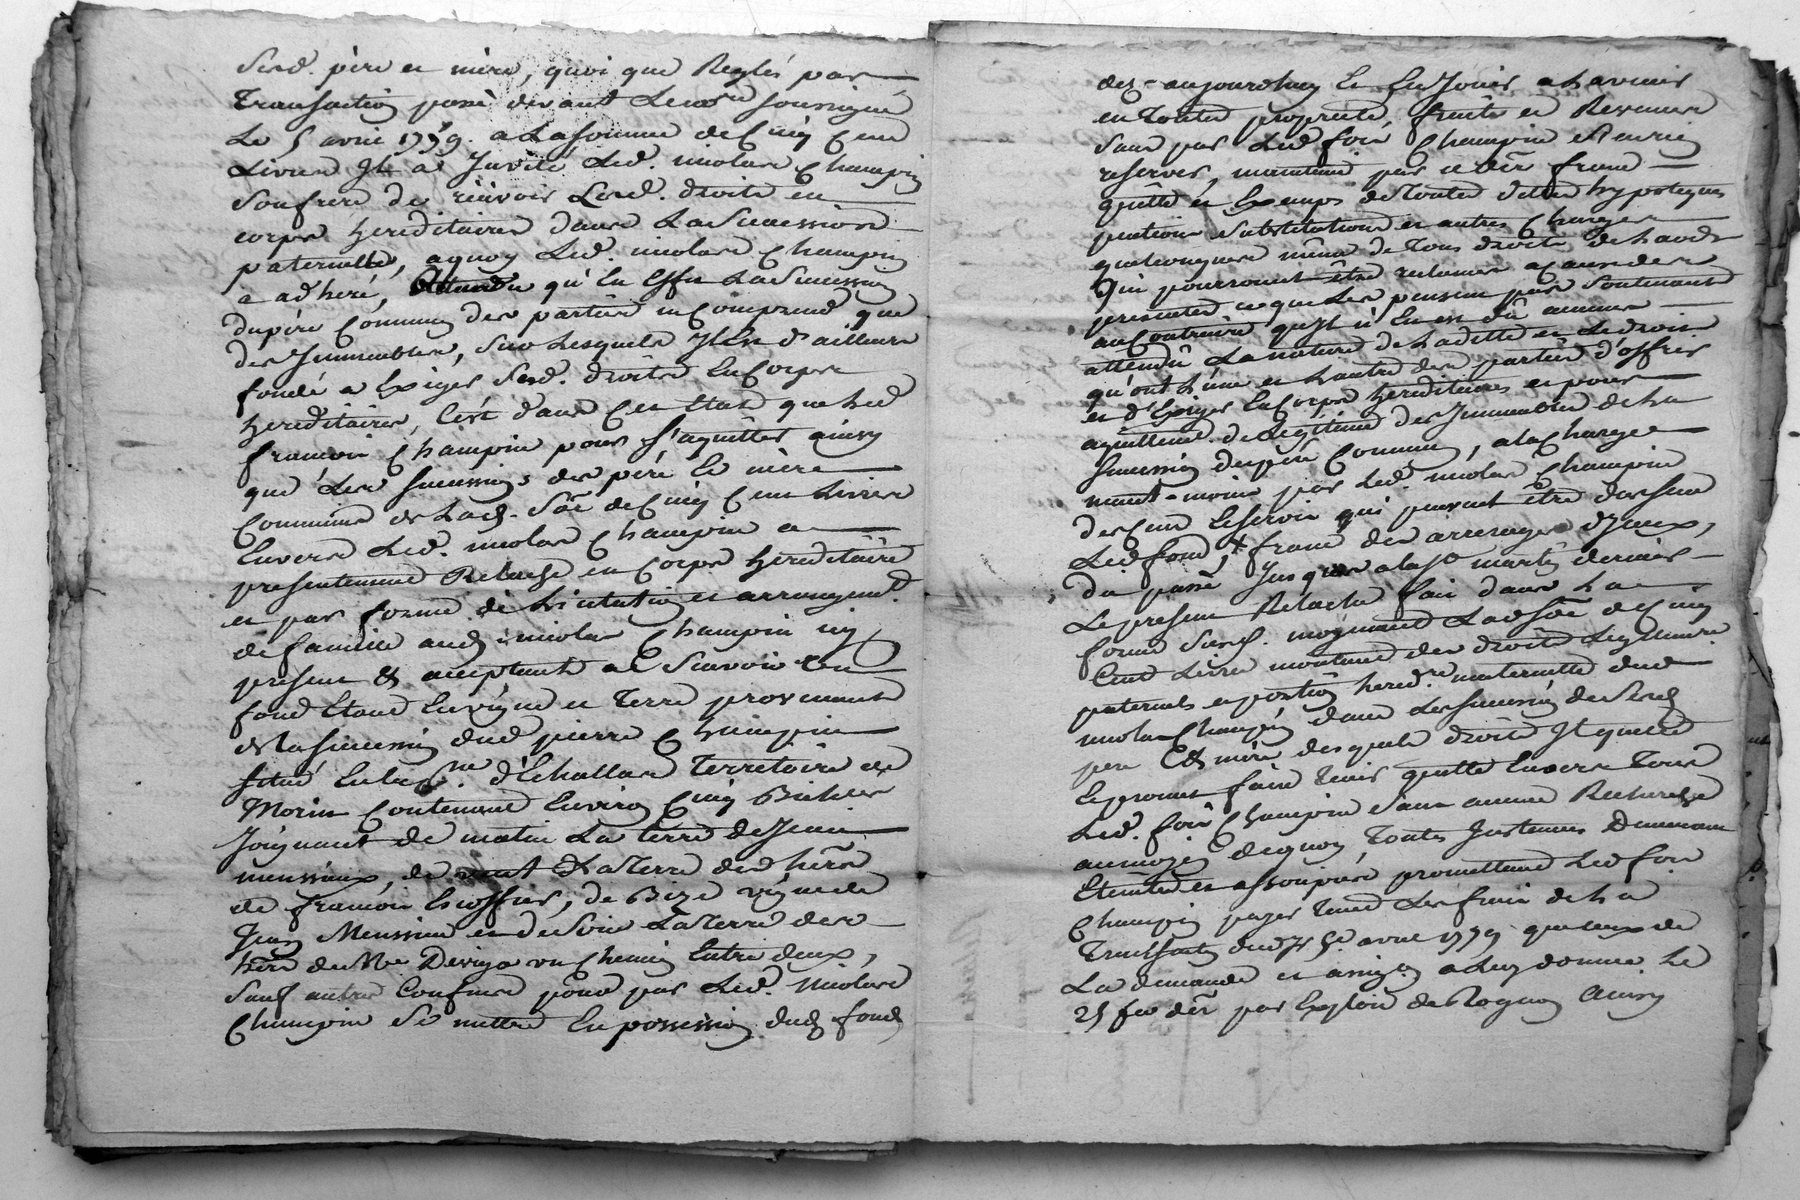 Sesd. père et mère, quoi que Reglés par
Transaction passé devant Le nore soussigné
Le 5 avril 1779. a La somme de Cinq Cent
Livres Il a Invité Led. nicolas Champin
Son frere de recevoir Lesd. droits en
corps hereditaires dans La Sucession
paternelle, aquoy Led. nicolas Champin
a adheré, Attendu qu'En Effet La Sucession
du père Commun des parties ne comprend que
des Immeubles, Sur Lesquels Il Est d'ailleurs
fondé a Exiger Sesd. droits En Corps
hereditaires, C'est dans Cet Etat que Led
francois Champin pour S'aquitter ainsy
que Les Sucessions des père Et mère
Communs de Lad. Sôe de Cinq Cent Livres
Envers Led. nicolas Champin a
presentement Relaché en Corps hereditaire
et par forme de Licitation et arrangemt.
de famille aud. nicolas Champin icy
present & acceptant a Scavoir Un
fond Etant En vigne et Terre provenant
de La Sucession dud pierre Champin
Situé En La psse d'Echallas Territoire de
Morin Contenant Environ Cinq Bicherées
Joignant de matin La terre de Jean
meussieux, de vent La Terre des hérs
de francois Escoffier, de Bize vigne de
Jean Meussieu et de Soir La Terre des
hérs de Me Devigo un Chemin Entre deux,
Sauf autres Confins pour par Led. Nicolas
Champin Se mettre En possession dud. fond
des aujourd'huy Et En Jouir a L'avenir
en Toutes proprieté, fruits et Revenus
Sans par Led fois Champin S'en rien
reserver, maintenu par ce dér franc
quitte et Exempt de Toutes dettes hypoteques
pentions Substitutions et autres Charges
quelconques même de Tous droits de Lods
Qui pourroient être reclamés a cause des
presentes ce que Les parties pour Soutenant
au Contraire qu'Il n'En est dû aucun
attendû La nature de La dette et Le droit
qu'ont L'une et L'autre des parties d'offrir
et d'Exiger En Corps hereditaires et pour
aquittement de Légitime des Immeubles de La
Sucession du père Commun, a La Charge
neant-moins par Led. nicolas Champin
des Cens Et Servis qui peuvent être dus sur
Led fond & franc des arrerages d'Iceux,
du passé Jusques a La St martin dernier
Le present Relaché fait dans La
forme Susd. moyenant La dSôe de Cinq
Cent Livres montant des droits Legitimaire
paternels et portion hered.re maternelle dud
nicolas Champin dans Les Sucessions de Sesd
pere Et mère desquels droits Il quitte
Et promet faire Tenir quitte Envers Tous
Led. fois Champin Sans aucune Recherche
au moyen dequoy Toutes Instances Demeurant
Eteintes et assoupies promettant Led fois
Champin payer Tant Les frais de La
Transaction dud. Jr 5e avril 1779 que ceux de
La demande et assignon a Luy donnée Le
25 fev dér par Exploit de Rognon Ainsy